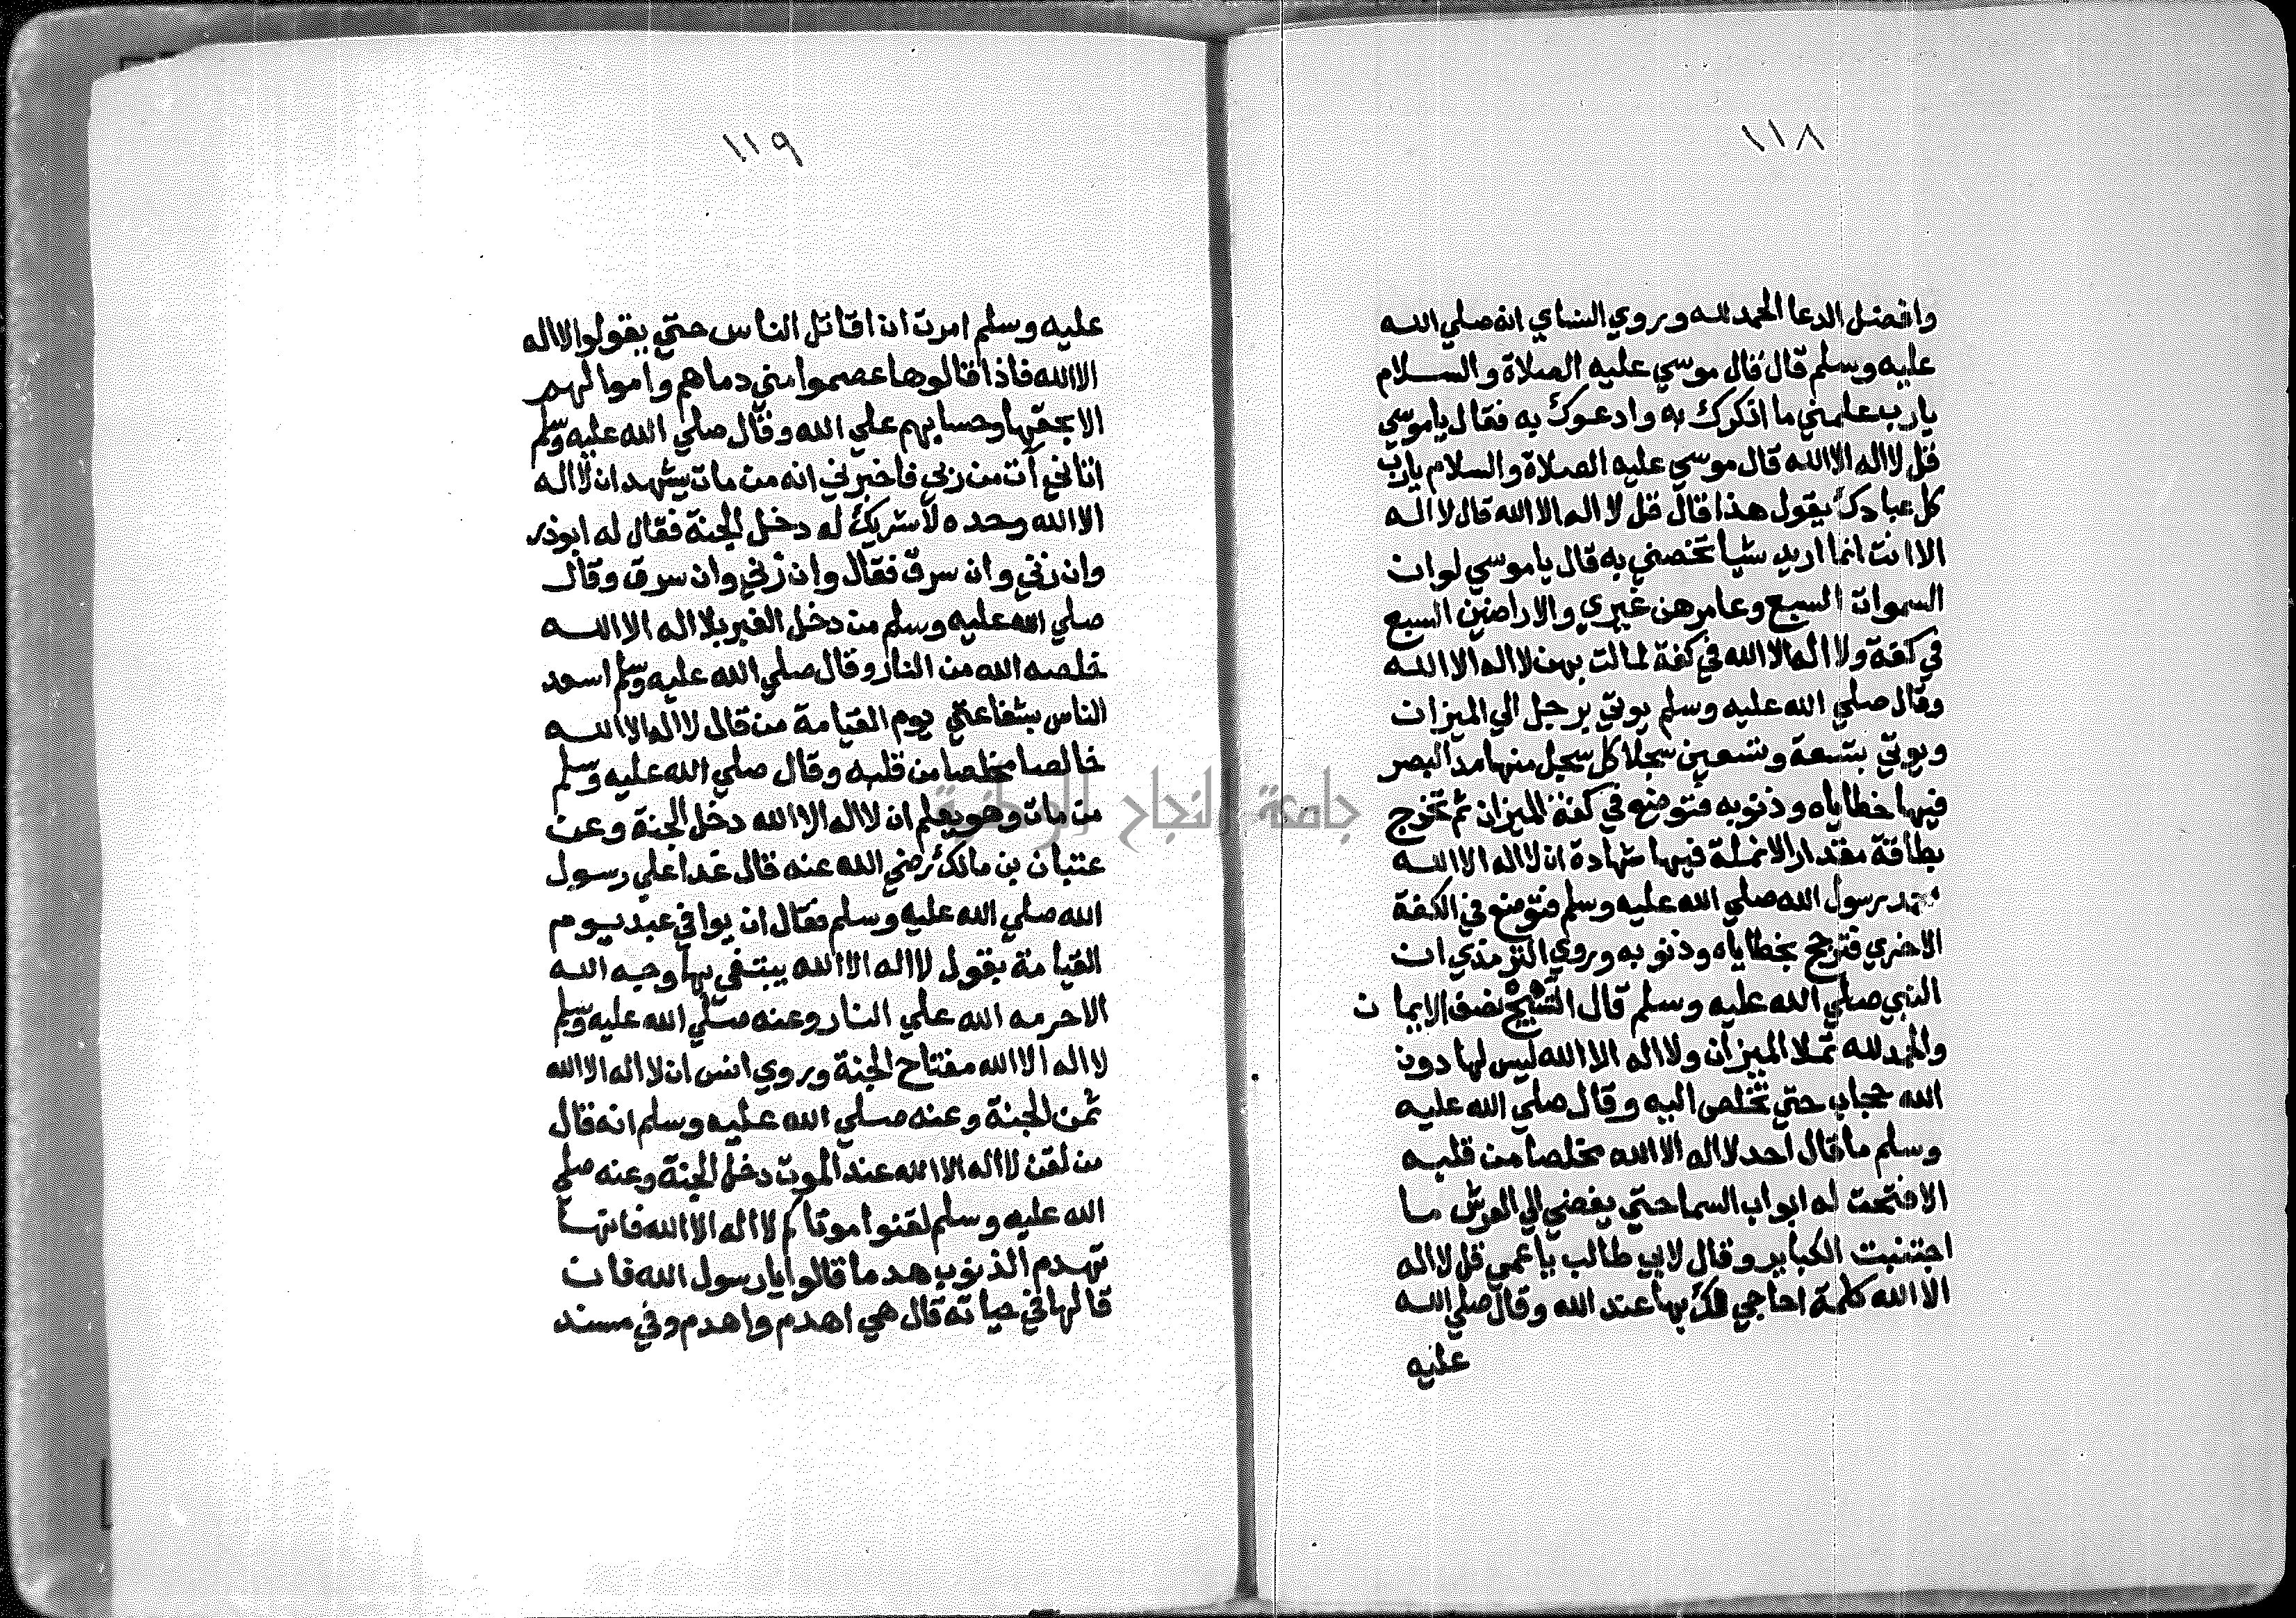 ١١٨
وافضل الدعا الحمد لله وروي النساي انه صلي الله
عليه وسلم قال قال موسي عليه الصلاة والسلام
يارب علمني ما اذكرك به وادعوك به فقال يا موسي
قل لا اله الا الله قال موسي عليه الصلاة والسلام يارب
كل عبادك يقول هذا قال قل لا اله الا الله قال لا اله
الا انت انما اريد شيا تخصني به قال يا موسي لو ان
السموات السبع وعامرهن غيري والاراضين السبع
في كفة ولا اله الا الله في كفة لمالت بهن لا اله الا الله
وقال صلي الله عليه وسلم يوتي برجل الي الميزان
ويوتي بتسعة وتسعين سجلا كل سجل منها مد البصر
فيها خطاياه وذنوبه فتوضع في كفة الميزان ثم تخرج
بطاقة مقدار الانملة فيها شهادة ان لا اله الا الله
محمد رسول الله صلي الله عليه وسلم فتوضع في الكفة
الاخري فترجح بخطاياه وذنوبه وروي الترمذي ان
النبي صلي الله عليه وسلم قال التسبيح نصف الايمان
والحمد لله تملا الميزان ولا اله الا الله ليس لها دون
الله حجاب حتي تخلص اليه وقال صلي الله عليه
وسلم ما قال احد لا اله الا الله مخلصا من قلبه
الا فتحت له ابواب السما حتي يفضي الي العرش ما
اجتنبت الكباير وقال لابي طالب يا عمي قل لا اله
الا الله كلمة احاجي لك بها عند الله وقال صلي الله
عليه
١١٩
عليه وسلم امرت ان اقاتل الناس حتي يقولوا لا اله
الا الله فاذا قالوها عصموا مني دماهم واموالهم
الا بحقها وحسابهم علي الله وقال صلي الله عليه وسلم
اتاني آت من ربي فاخبرني انه من مات يشهد ان لا اله
الا الله وحده لا شريك له دخل الجنة فقال له ابوذر
وان زني وان سرق فقال وان زني وان سرق وقال
صلي الله عليه وسلم من دخل القبر بلا اله الا الله
خلصه الله من النار وقال صلي الله عليه وسلم اسعد
الناس بشفاعتي يوم القيامة من قال لا اله الا الله
خالصا مخلصا من قلبه وقال صلي الله عليه وسلم
من مات وهو يعلم ان لا اله الا الله دخل الجنة وعن
عتبان بن مالك رضي الله عنه قال غدا علي رسول
الله صلي الله عليه وسلم فقال ان يوافي عبد يوم
القيامة يقول لا اله الا الله يبتغي بها وجه الله
الا حرمه الله علي النار وعنه صلي الله عليه وسلم
لا اله الا الله مفتاح الجنة وروي انس ان لا اله الا الله
ثمن الجنة وعنه صلي الله عليه وسلم انه قال
من لقن لا اله الا الله عند الموت دخل الجنة وعنه صلي
الله عليه وسلم لقنوا موتاكم لا اله الا الله فانها
تهدم الذنوب هدما قالوا يا رسول الله فان
قالها في حياته قال هي اهدم واهدم وفي مسند
جامعة النجاح الوطنية